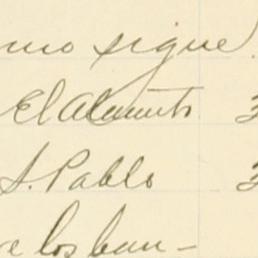 mo sigue
El Alamito 3
S. Pablo 3
e los ban-